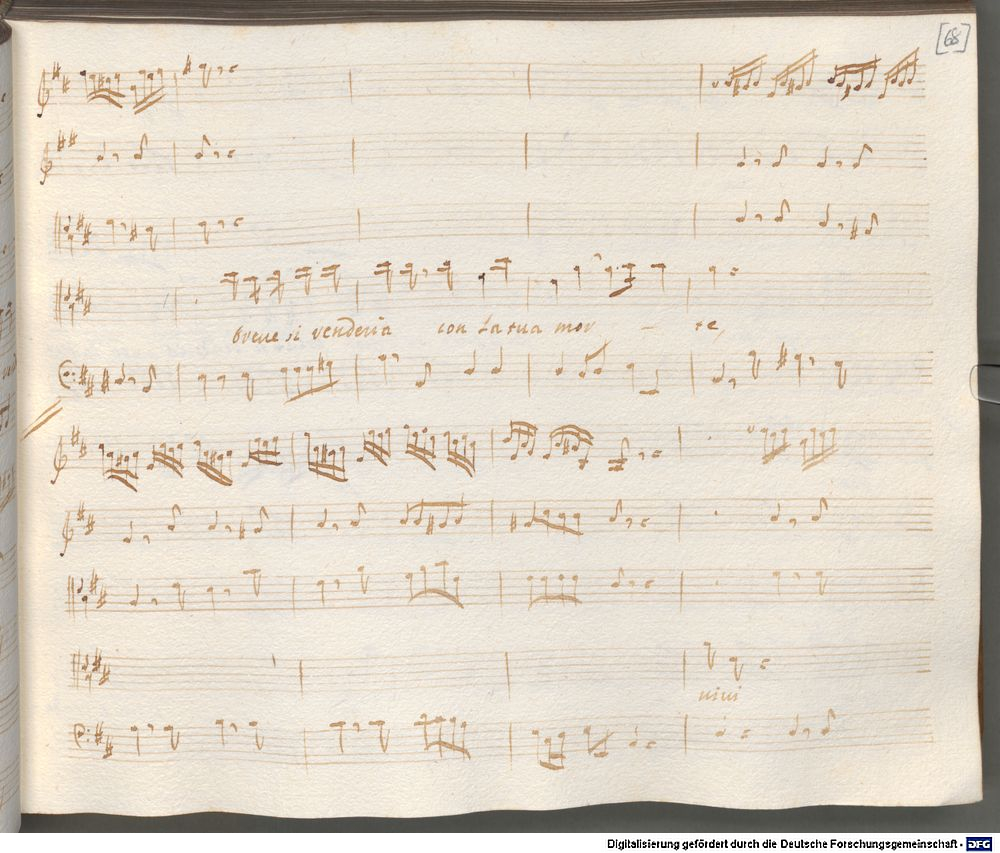 [68]
breve si venderia con la tua mor - te,
vivi
Digitalisierung gefördert durch die Deutsche Forschungsgemeinschaft - DFG